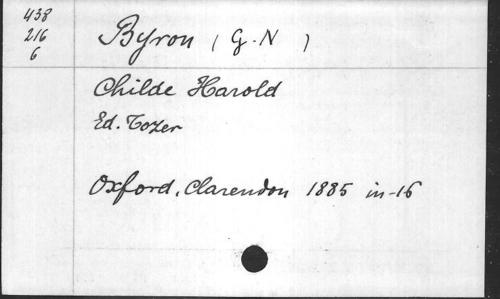 438
216
6
Byron (G-N)
Childe Harold
Ed. Tozer
Oxford, Clarendon 1885 in-16